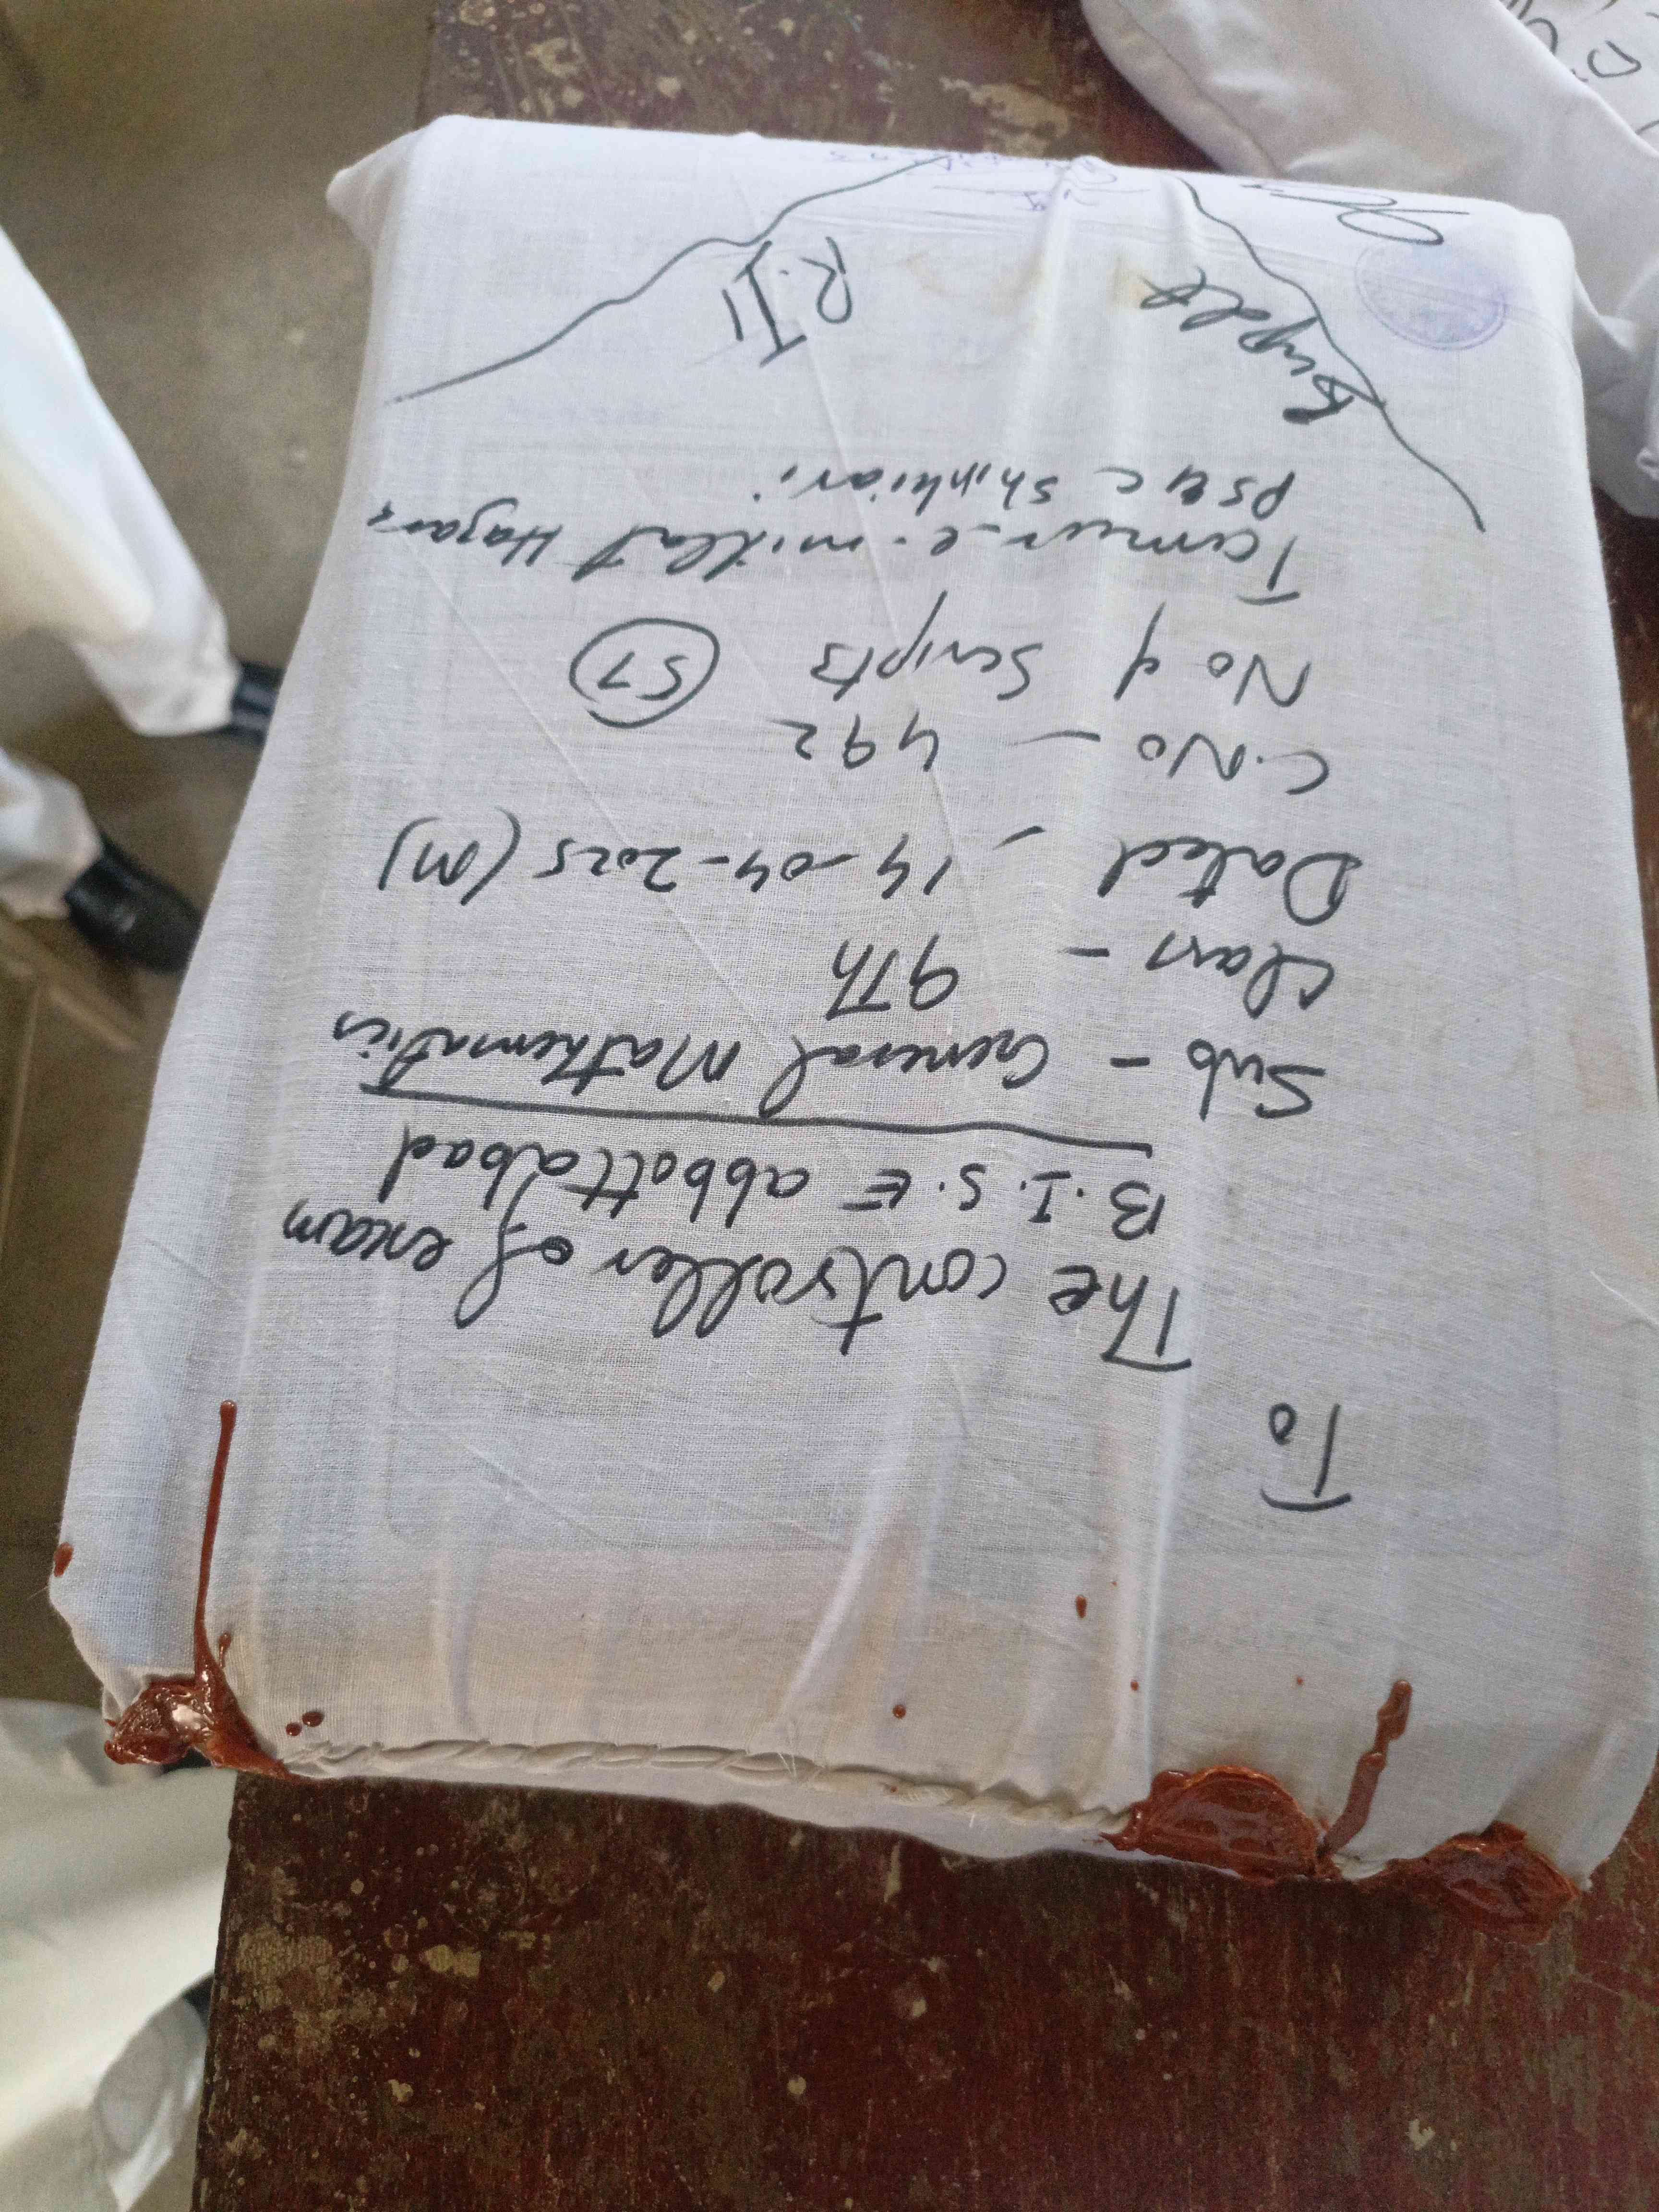 To
The controller of exam
B.I.S.E abbottabad
Sub - General Mathematics
Class - 9Th
Dated - 14-04-2025 (M)
C.No - 492
No of Scripts 57
Tameer-e-millat Hazara
PS&C Shinkiari
R.II